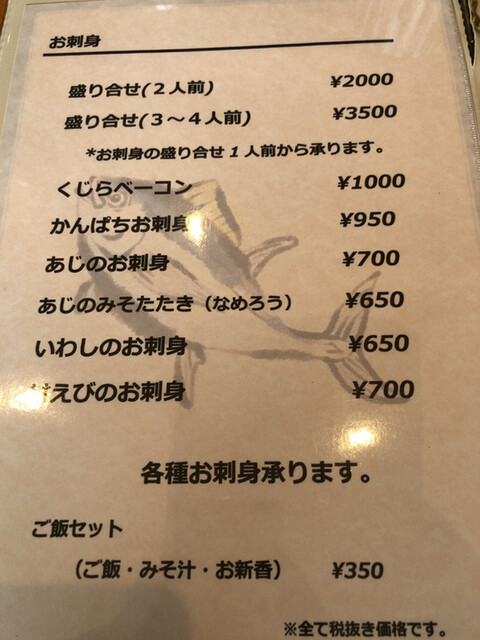 お刺身
盛り合せ(２人前) ¥2000
盛り合せ(３～４人前) ¥3500
*お刺身の盛り合せ１人前から承ります。
くじらベーコン ¥1000
かんぱちお刺身 ¥950
あじのお刺身 ¥700
あじのみそたたき（なめろう） ¥650
いわしのお刺身 ¥650
えびのお刺身 ¥700
各種お刺身承ります。
ご飯セット
（ご飯・みそ汁・お新香） ¥350
※全て税抜き価格です。